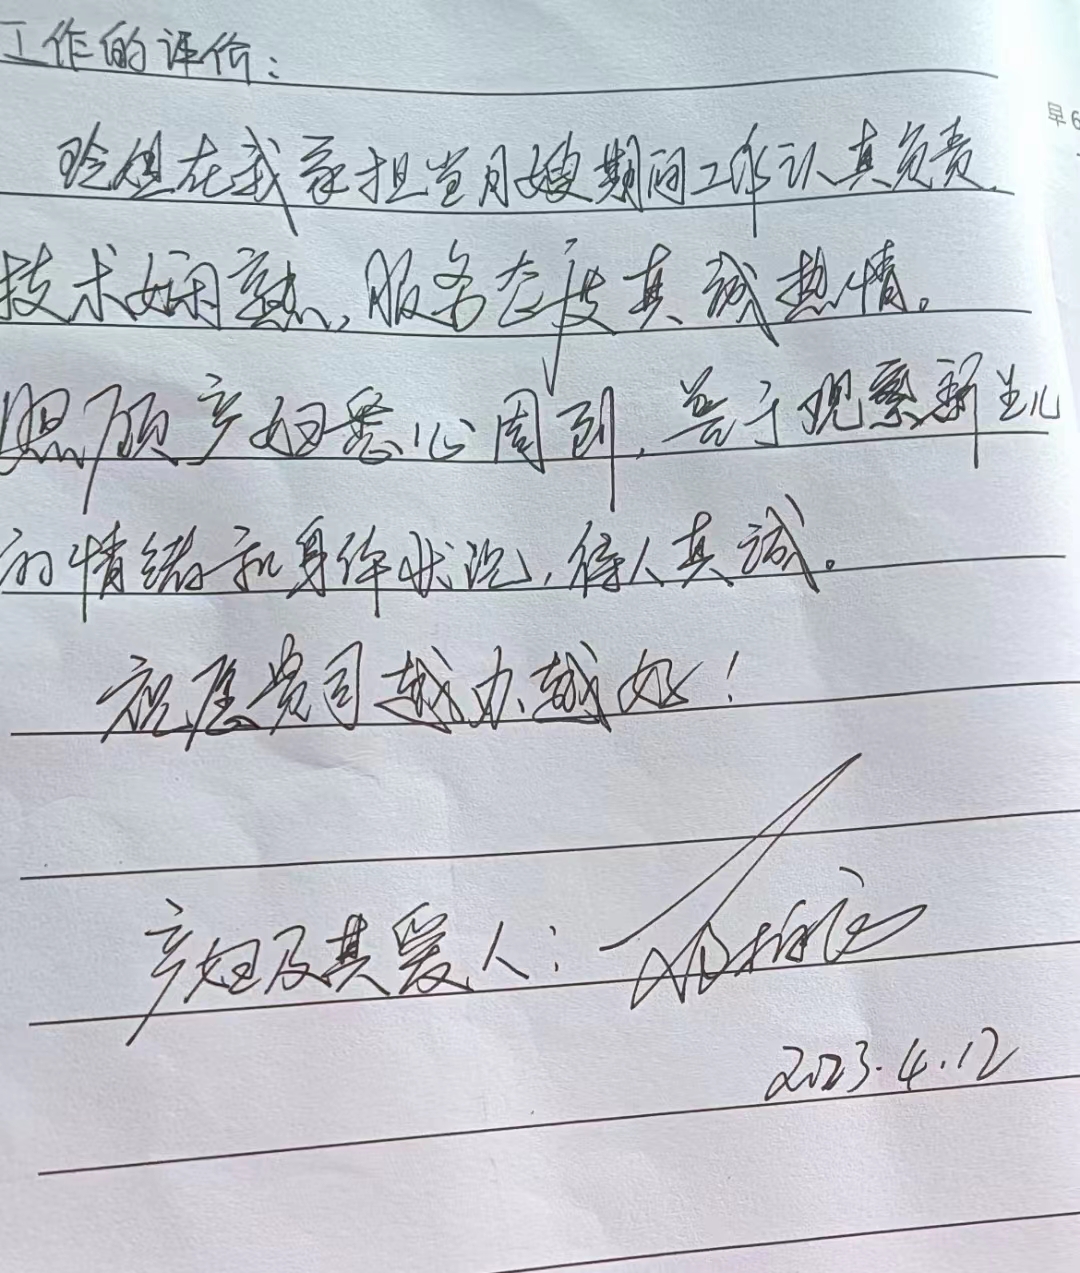 工作的评价：
早6
玲姐在我家担当月嫂期间工作认真负责，
技术娴熟，服务态度真诚热情。
照顾产妇悉心周到，善于观察新生儿
的情绪和身体状况，待人真诚。
祝愿贵司越办越好！
产妇及其爱人：
2023.4.12